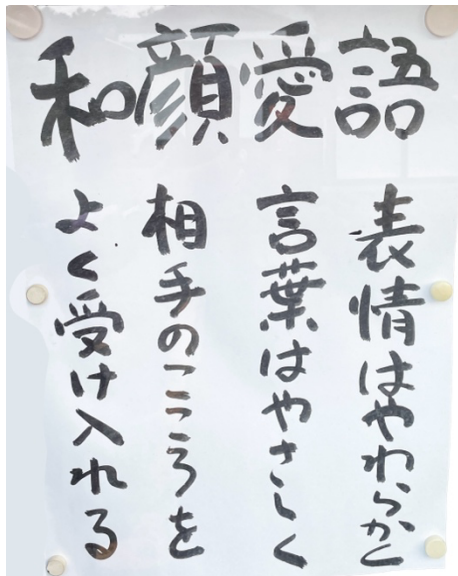 和顔愛語
表情はやわらかく
言葉はやさしく
相手のこころを
よく受け入れる